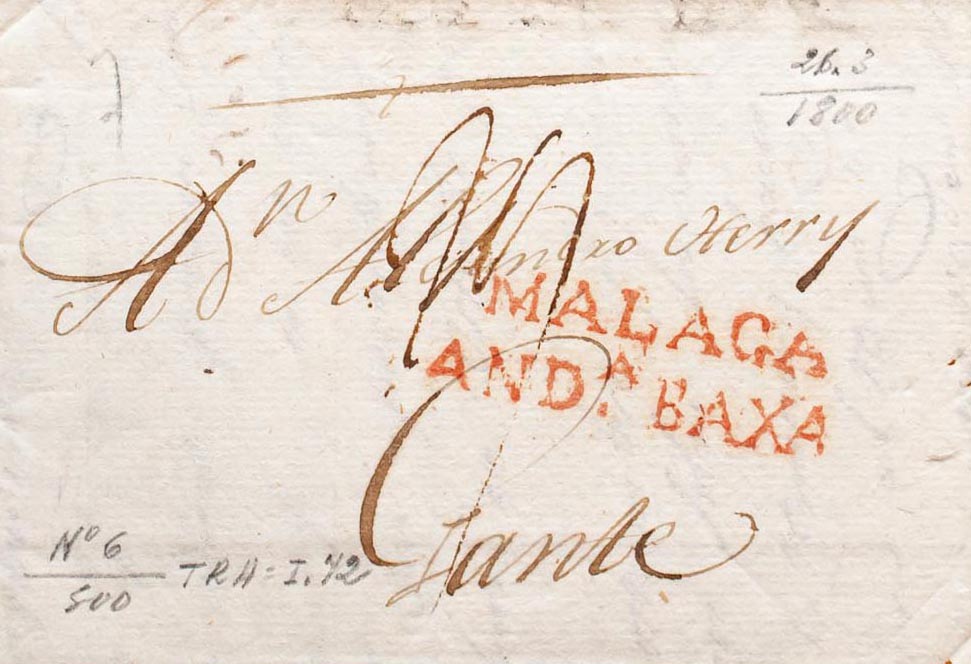 26.3
1800
A Dn Alexandro Herry
MALAGA
AND.A BAXA
Gante
Nº 6
500
TRH = I.42